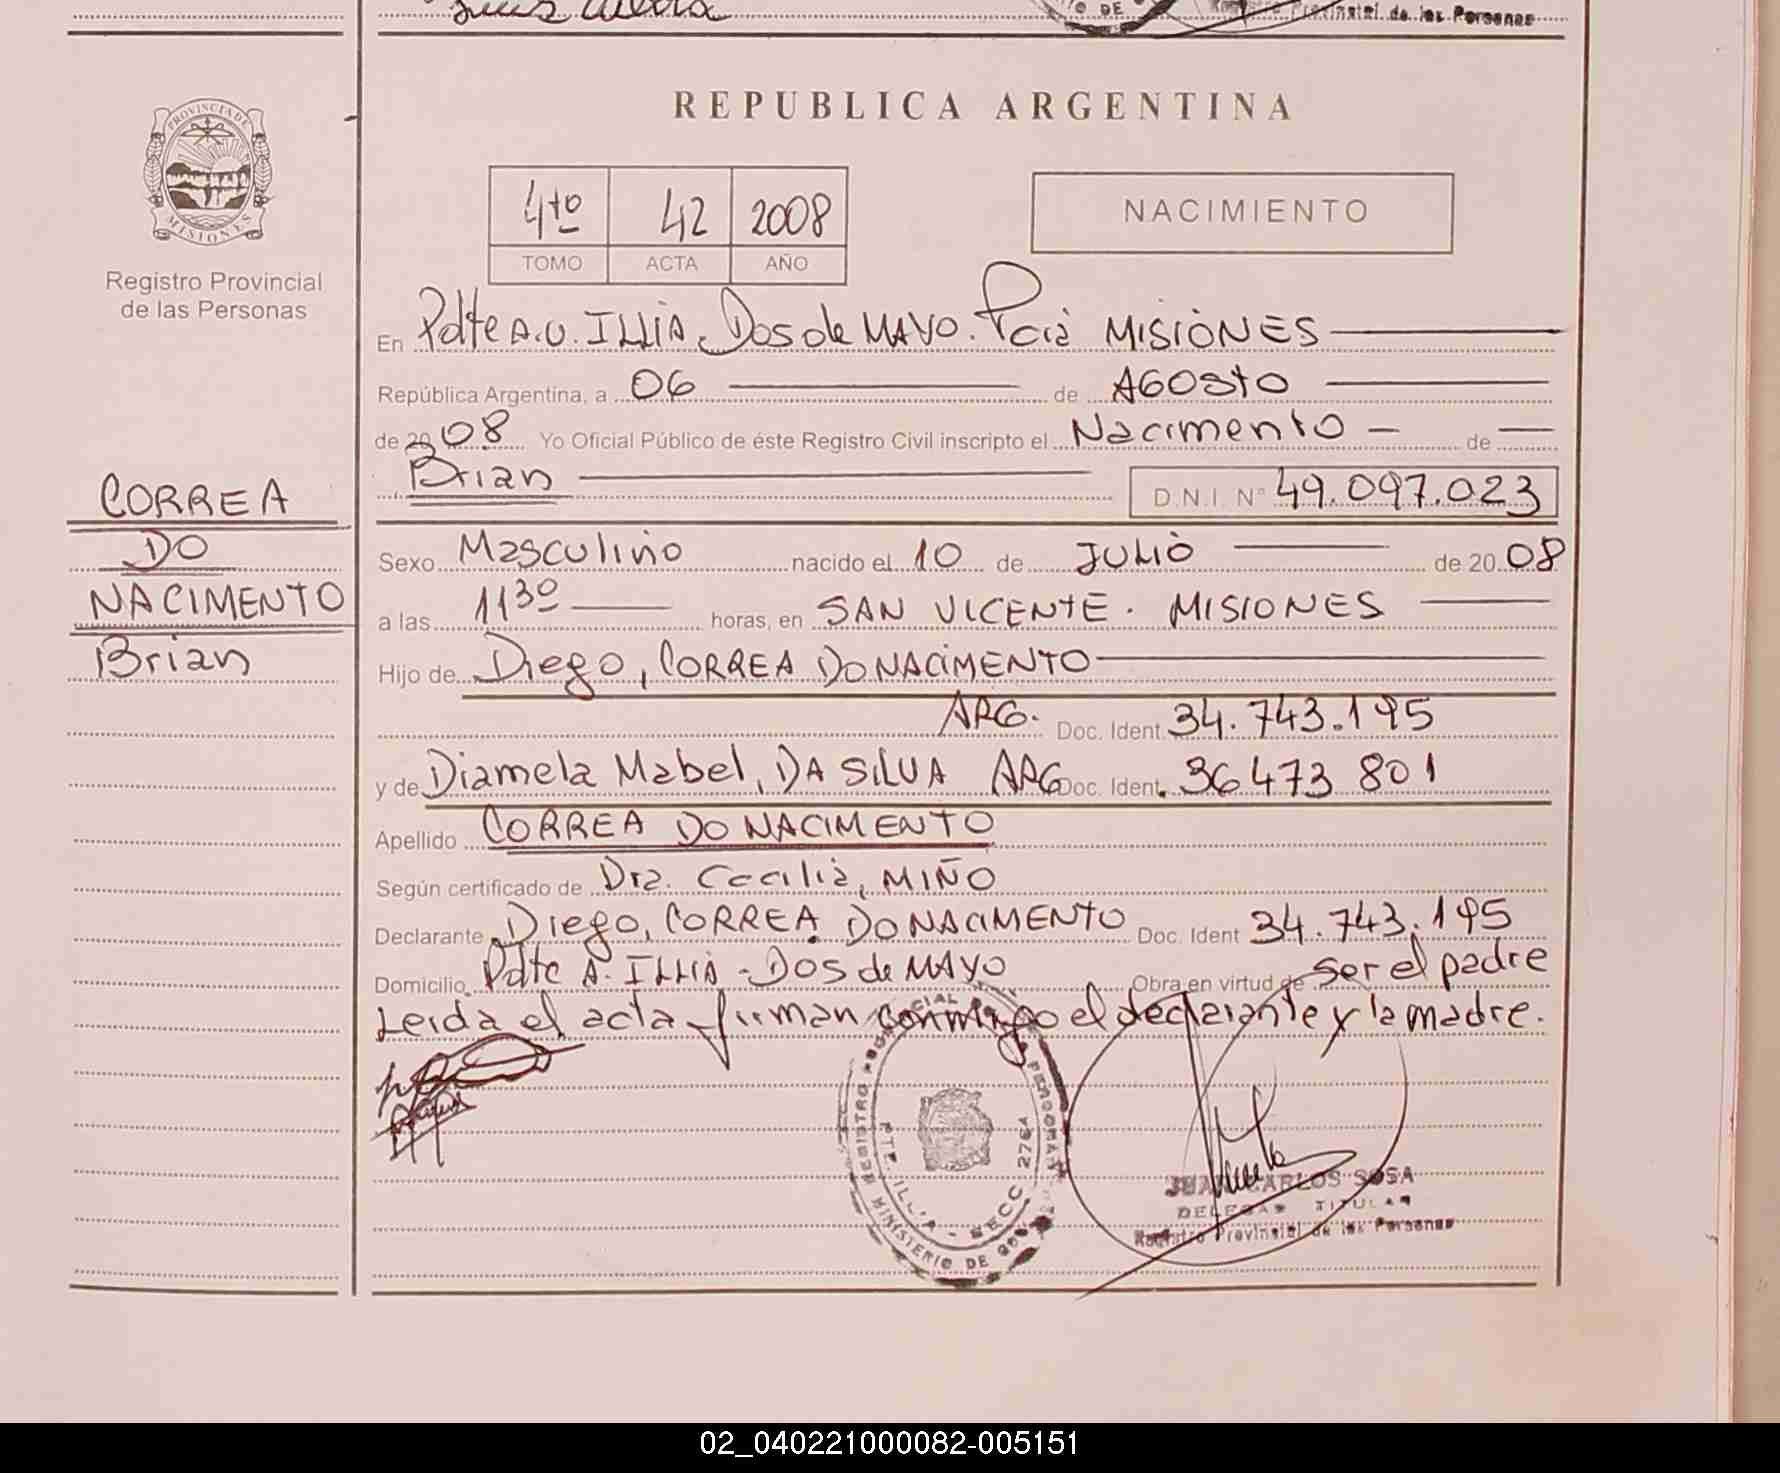 Provinsial de las Personas
REPUBLICA ARGENTINA
PROVINCIA DE MISIONES
Registro Provincial
de las Personas
4to 42 2008
TOMO ACTA AÑO
NACIMIENTO
En Pdte A.U. ILLIA. Dos de MAYO. Pcia MISIONES
República Argentina, a 06 de AGOSTO
de 2008 Yo Oficial Público de éste Registro Civil inscripto el Nacimento - de
Brian D.N.I. Nº 49.097.023
CORREA
DO
NACIMENTO
Brian
Sexo Masculino nacido el 10 de JULIO de 20 08
a las 11 30 horas, en SAN VICENTE. MISIONES
Hijo de Diego, CORREA DO NACIMENTO
ARG. Doc. Ident. 34.743.195
y de Diamela Mabel, DA SILVA ARG Doc. Ident. 36 473 801
Apellido CORREA DO NACIMENTO
Según certificado de Dra. Cecilia, MIÑO
Declarante Diego, CORREA DO NACIMENTO Doc. Ident 34.743.195
Domicilio Pdte A. ILLIA - Dos de MAYO Obra en virtud de ser el padre
Leida el acta firman conmigo el declarante y la madre.
REGISTRO PROVINCIAL PERSONAS
PTE. ILLIA - SECC 2764
MINISTERIO DE
JUAN CARLOS SOSA
DELEGAD TITULAR
Registro Provinsial de las Personas
02_040221000082-005151